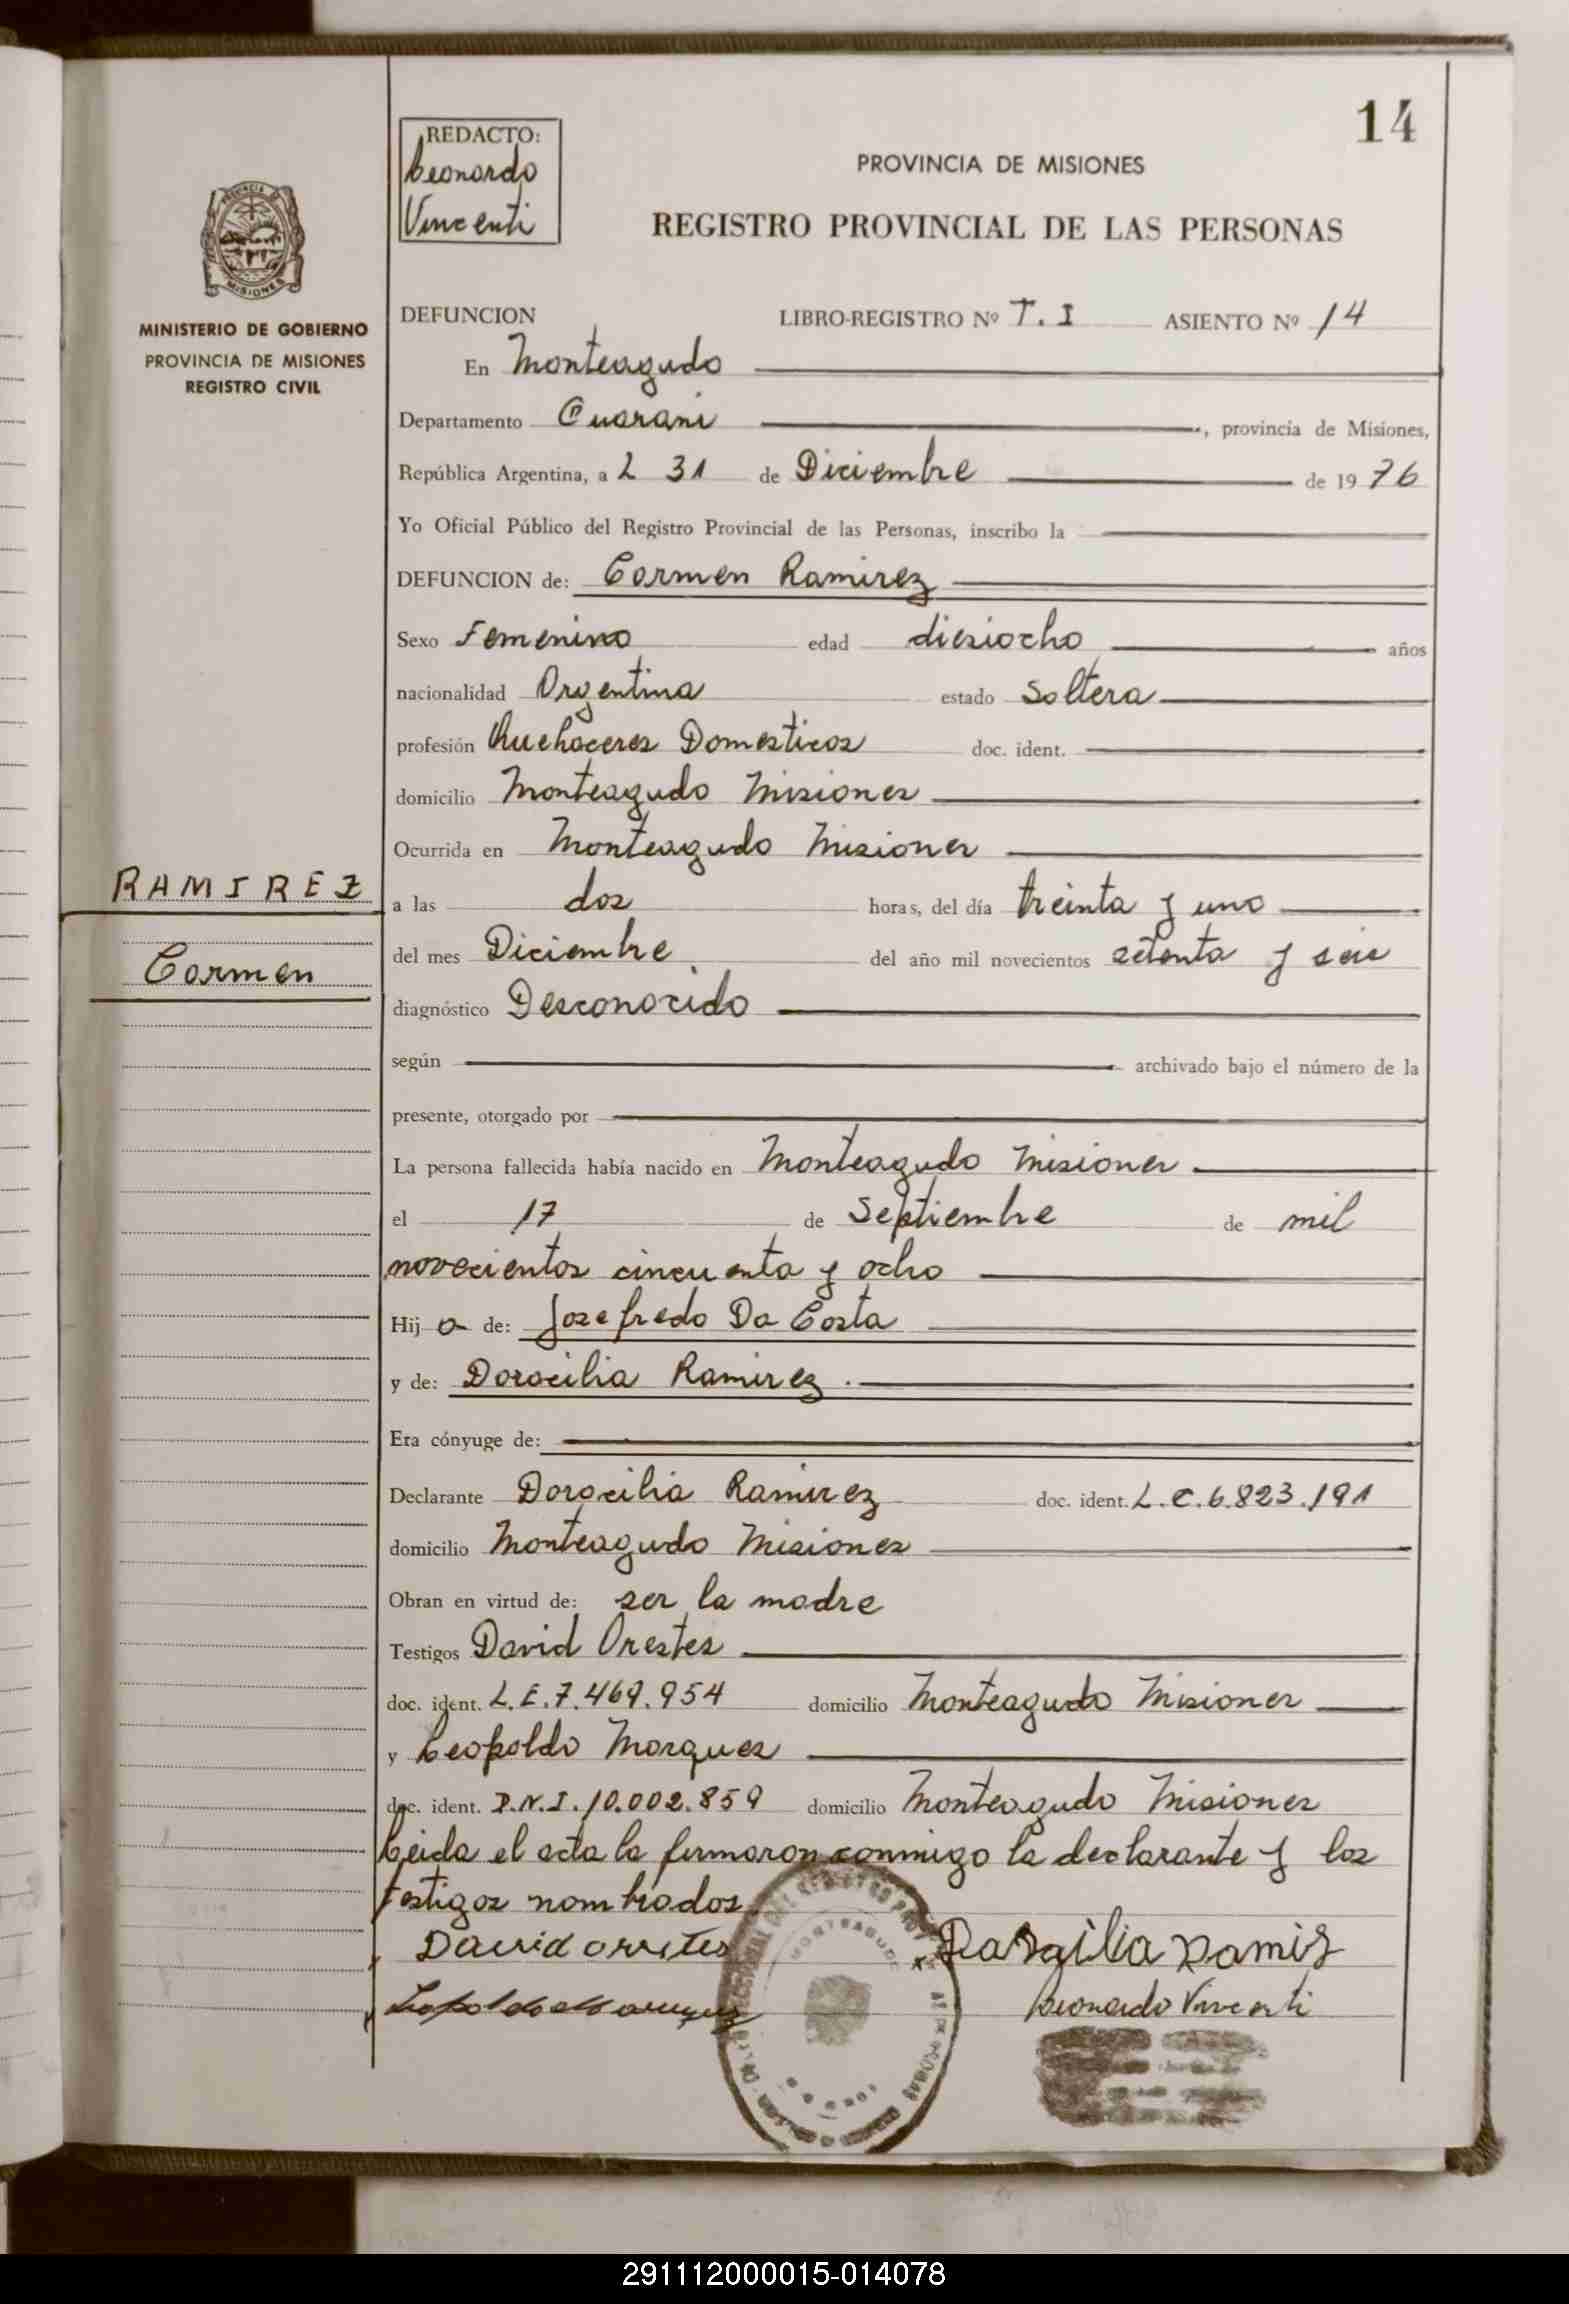 14
REDACTO:
Leonardo
Vincenti
PROVINCIA DE MISIONES
REGISTRO PROVINCIAL DE LAS PERSONAS
MISIONES
MINISTERIO DE GOBIERNO
PROVINCIA DE MISIONES
REGISTRO CIVIL
DEFUNCION LIBRO-REGISTRO Nº T. I ASIENTO Nº 14
En Monteagudo
Departamento Guarani, provincia de Misiones,
República Argentina, a L 31 de Diciembre de 1976
Yo Oficial Público del Registro Provincial de las Personas, inscribo la
DEFUNCION de: Carmen Ramirez
Sexo Femenino edad diesiocho años
nacionalidad Argentina estado Soltera
profesión Quehaceres Domesticos doc. ident.
domicilio Monteagudo Misiones
Ocurrida en Monteagudo Misiones
RAMIREZ
Carmen
a las dos horas, del día treinta y uno
del mes Diciembre del año mil novecientos setenta y seis
diagnóstico Desconocido
según archivado bajo el número de la
presente, otorgado por
La persona fallecida había nacido en Monteagudo Misiones
el 17 de Septiembre de mil
novecientos cincuenta y ocho
Hija de: Josefredo Da Costa
y de: Doracilia Ramirez.
Era cónyuge de:
Declarante Doracilia Ramirez doc. ident. L.C.6.823.191
domicilio Monteagudo Misiones
Obran en virtud de: ser la madre
Testigos David Orestes
doc. ident. L.E.7.469.954 domicilio Monteagudo Misiones
y Leopoldo Marques
doc. ident. D.N.I.10.002.859 domicilio Monteagudo Misiones
Leida el acta la firmaron conmigo la declarante y los
testigos nombrados
David orrstes
Leonardo Vincenti
MONTEAGUDO
291112000015-014078